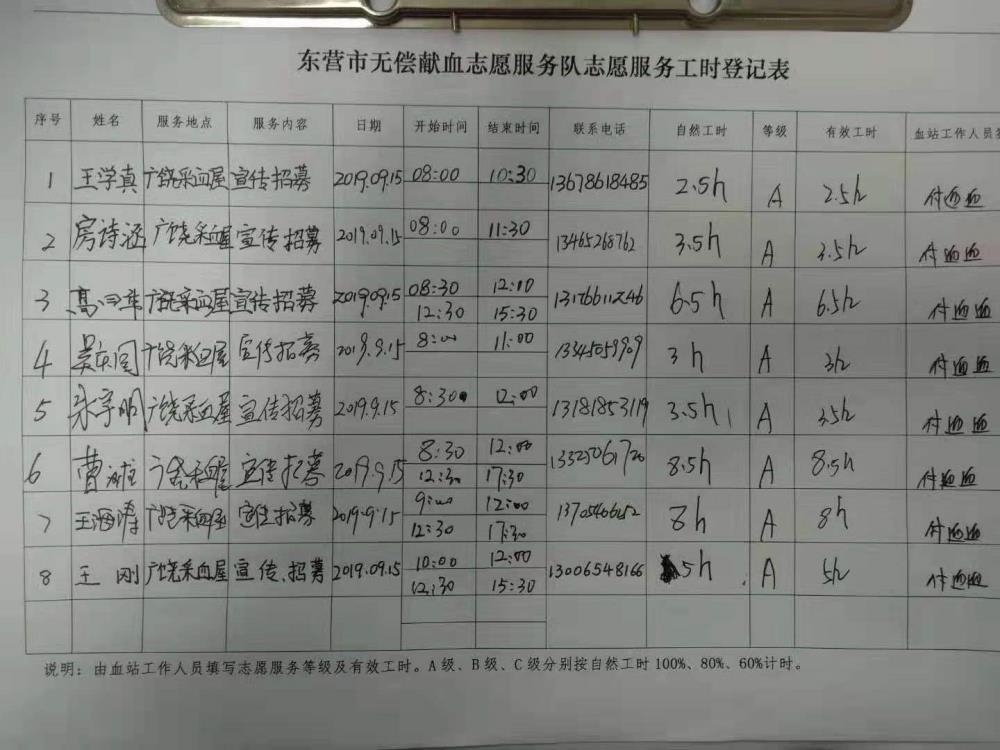 东营市无偿献血志愿服务队志愿服务工时登记表
序号 姓名 服务地点 服务内容 日期 开始时间 结束时间 联系电话 自然工时 等级 有效工时 血站工作人员
1 王学真 广饶采血屋 宣传招募 2019.09.15 08:00 10:30 13678618485 2.5h A 2.5h
2 房诗涵 广饶采血屋 宣传招募 2019.09.15 08:00 11:30 13465268762 3.5h A 3.5h
3 广饶采血屋 宣传招募 2019.09.15 08:30 12:00 6.5h A 6.5h
12:30 15:30
4 广饶采血屋 宣传招募 2019.9.15 8:00 11:00 3h A 3h
5 广饶采血屋 宣传招募 2019.9.15 8:30 12:00 13181853119 3.5h A 3.5h
6 广饶采血屋 宣传招募 2019.9.15 8:30 12:00 8.5h A 8.5h
12:30 17:30
7 王海涛 广饶采血屋 宣传招募 2019.9.15 9:00 12:00 8h A 8h
12:30 17:30
8 王刚 广饶采血屋 宣传招募 2019.09.15 10:00 12:00 13006548166 5h A 5h
12:30 15:30
说明：由血站工作人员填写志愿服务等级及有效工时。A级、B级、C级分别按自然工时100%、80%、60%计时。